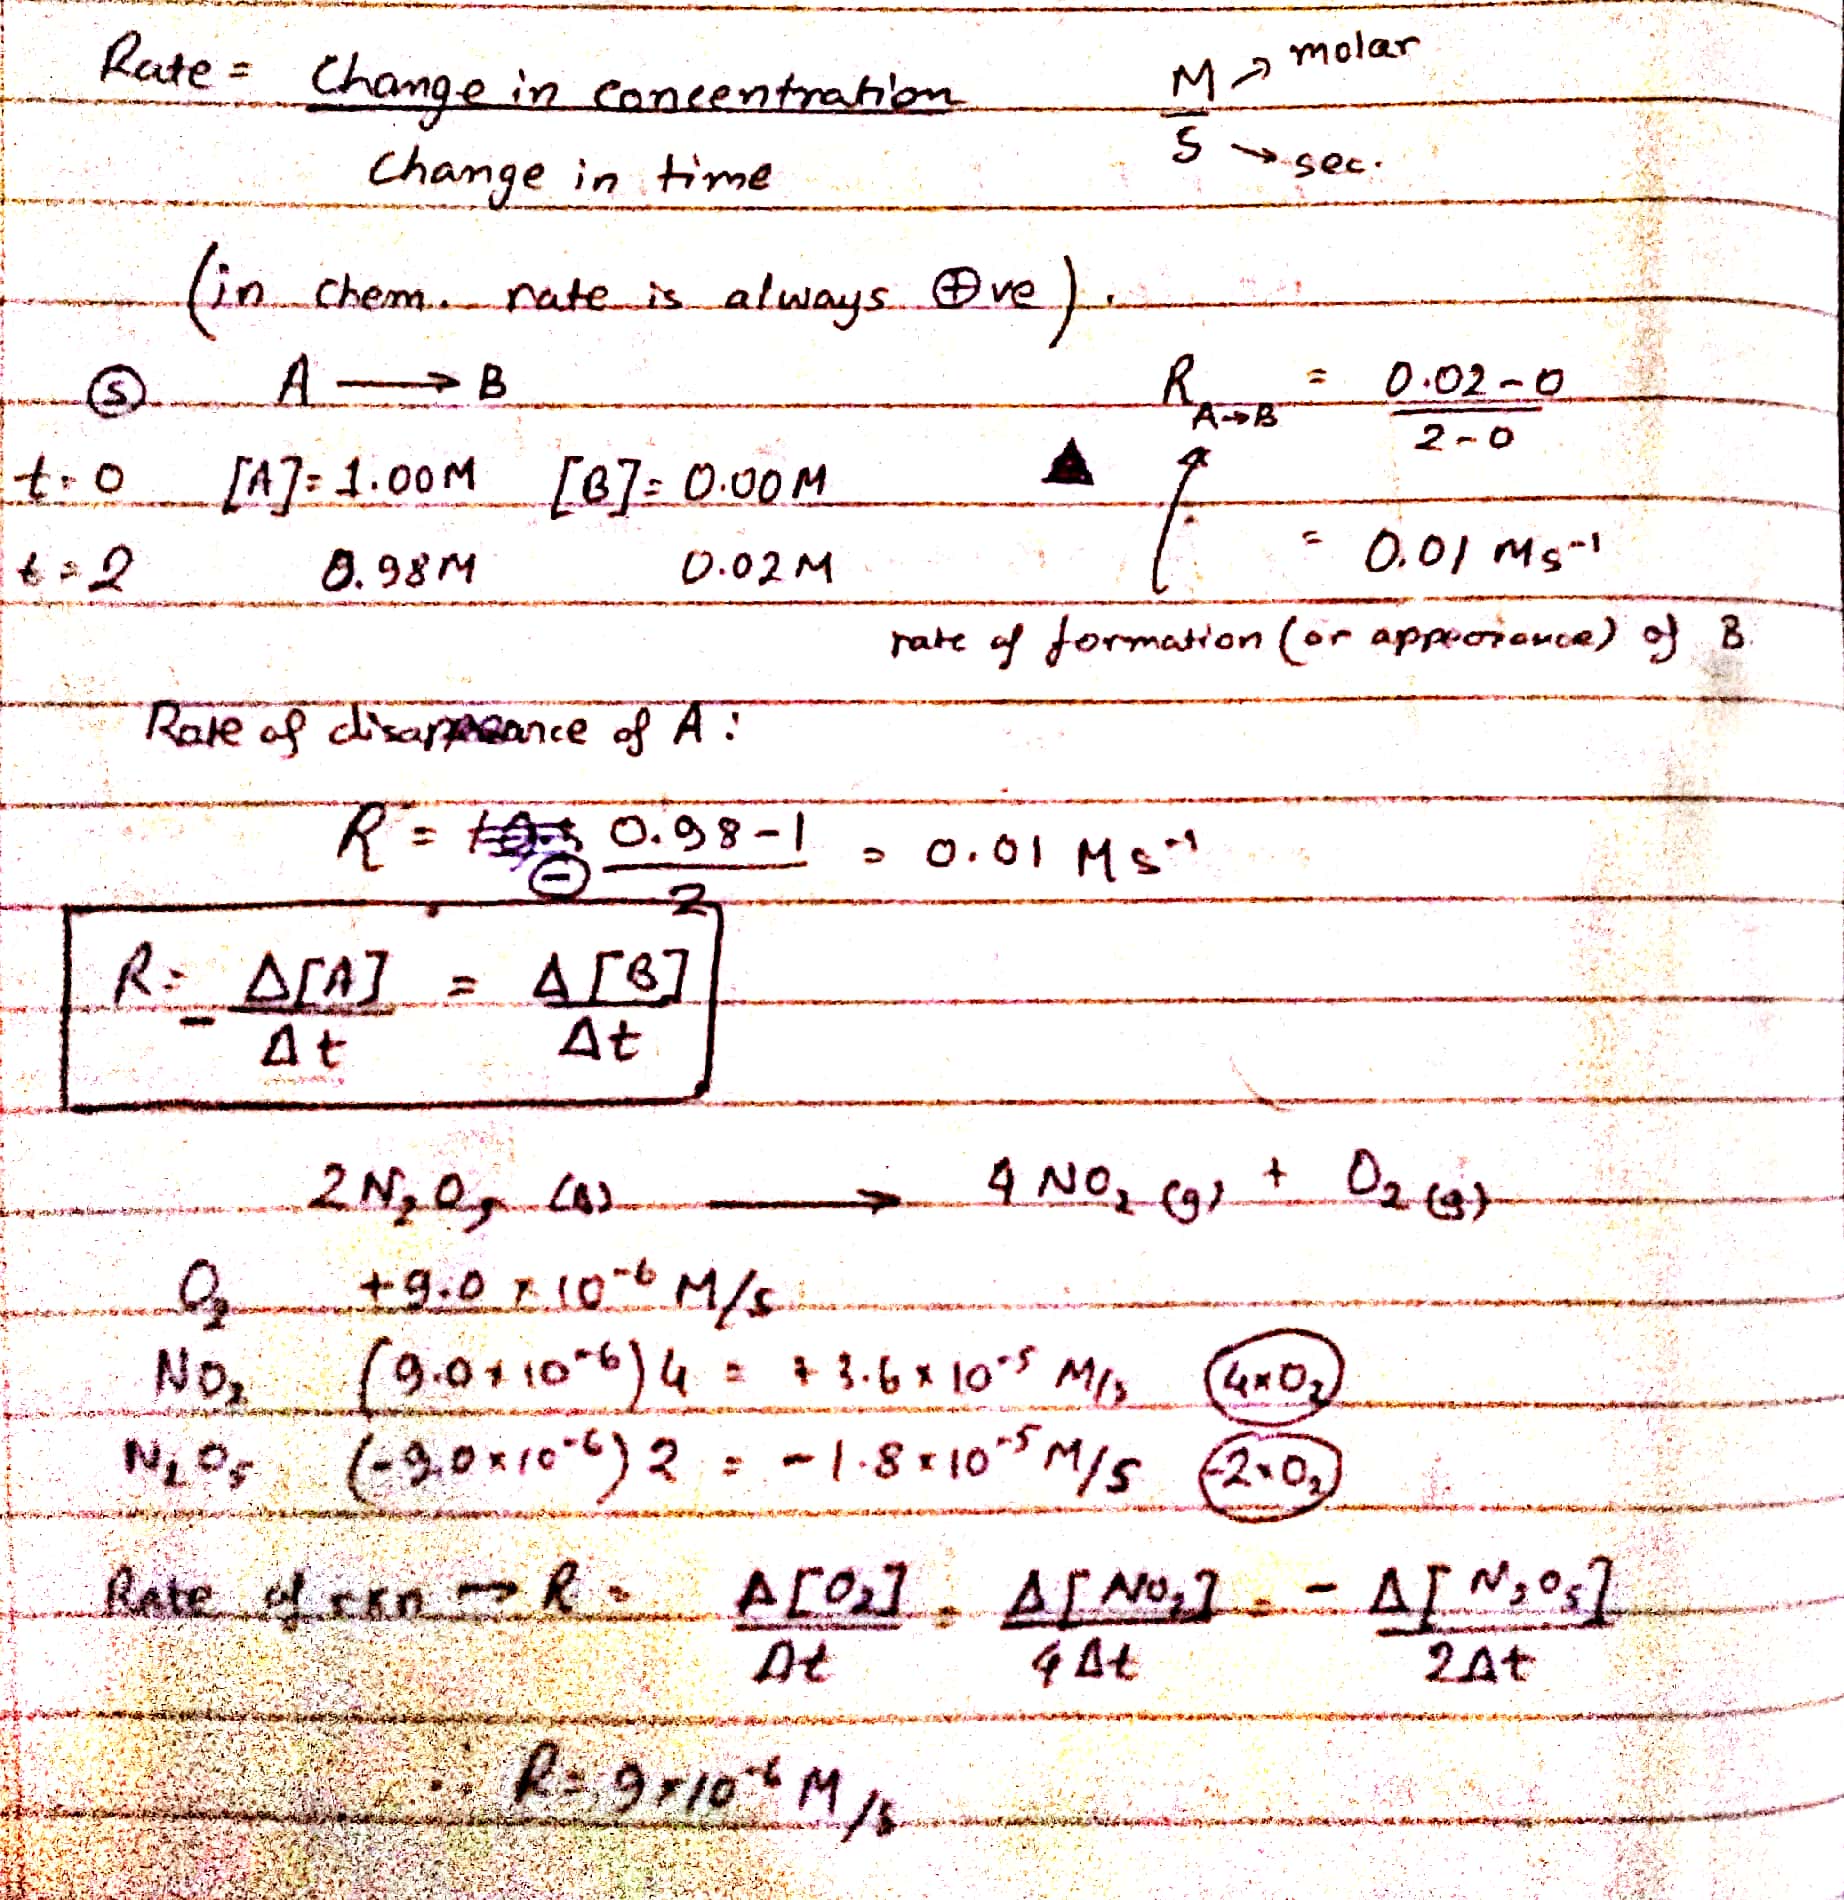 Rate = Change in concentration M → molar
Change in time S → sec.
(in chem. rate is always ⊕ve).
Ⓢ A ⟶ B R A→B = 0.02-0
2-0
t=0 [A]=1.00M [B]=0.00M ▲
= 0.01 Ms⁻¹
t=2 0.98M 0.02M
rate of formation (or appearance) of B.
Rate of disappearance of A:
R = ⊖ 0.98-1 = 0.01 Ms⁻¹
2
R = - Δ[A] = Δ[B]
Δt Δt
2N₂O₅ ⟶ 4NO₂(g) + O₂(g)
O₂ +9.0 × 10⁻⁶ M/s
NO₂ (9.0×10⁻⁶)4 = +3.6×10⁻⁵ M/s 4×O₂
N₂O₅ (-9.0×10⁻⁶)2 = -1.8×10⁻⁵ M/s -2×O₂
Rate of rxn → R = Δ[O₂] = Δ[NO₂] = - Δ[N₂O₅]
Δt 4Δt 2Δt
∴ R = 9×10⁻⁶ M/s